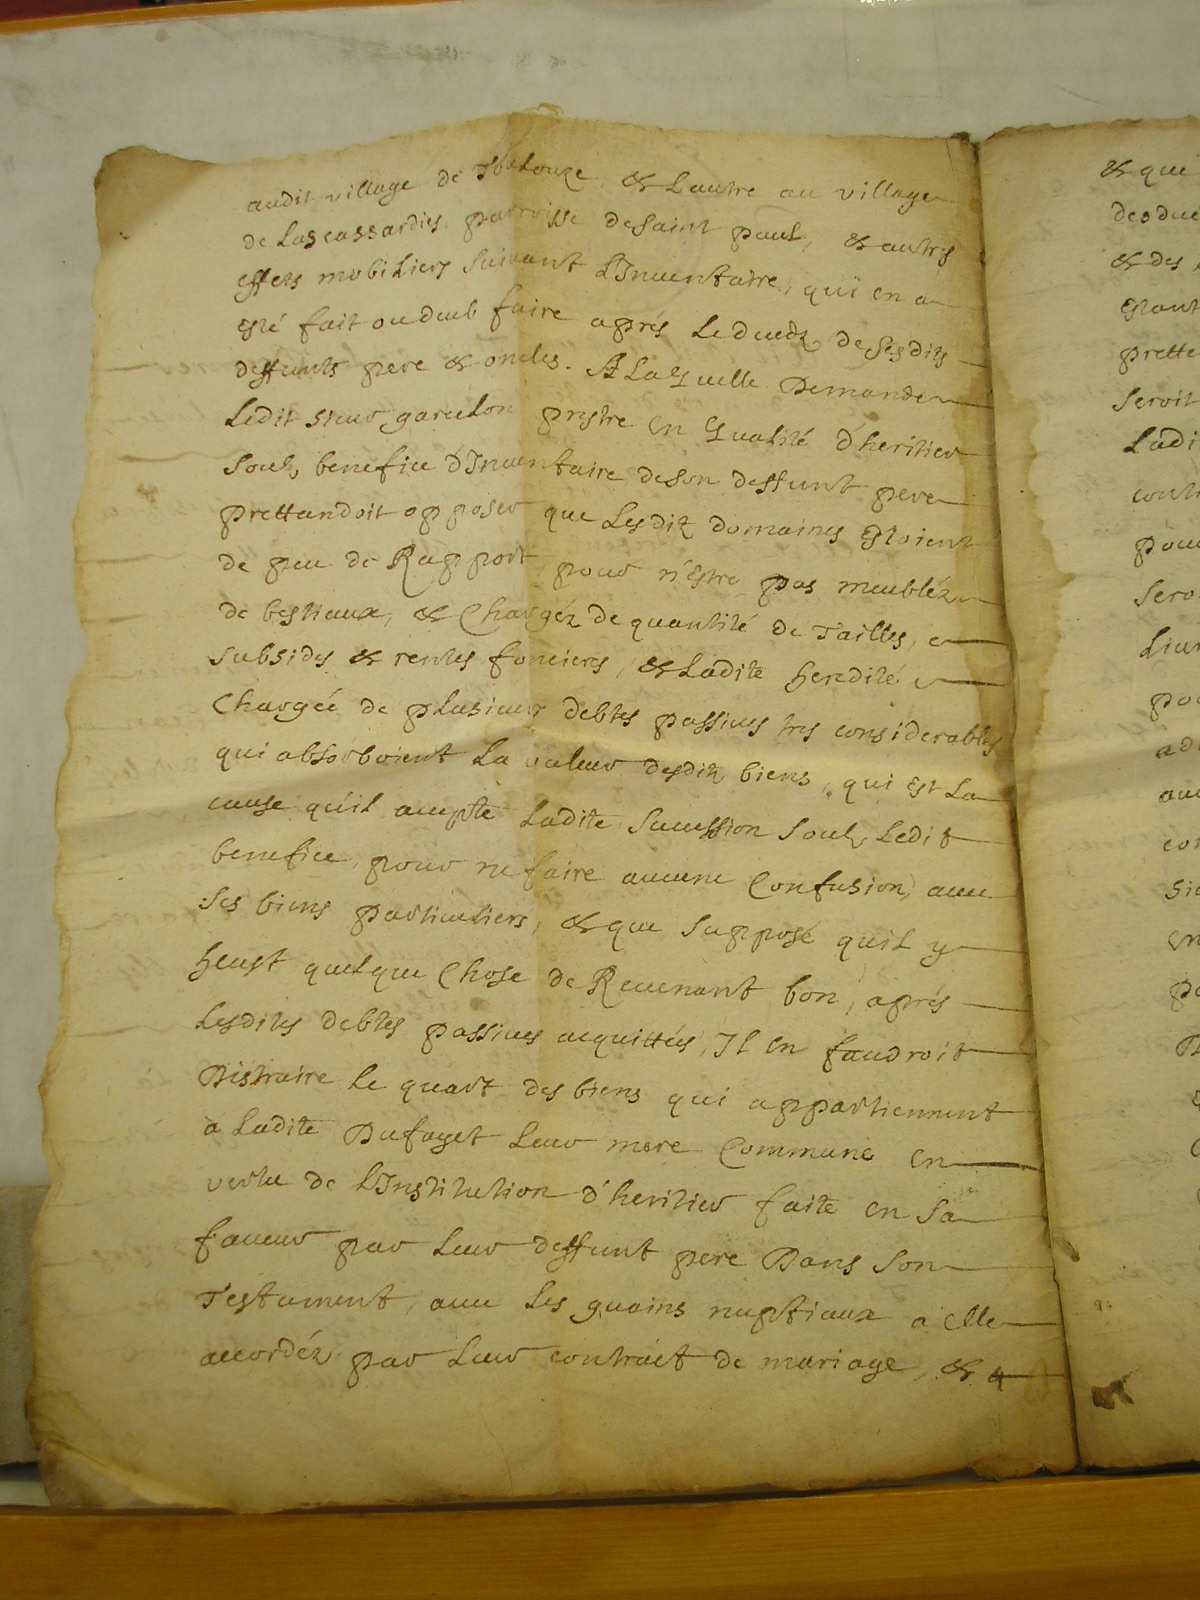 audit village de Thalouze & Lautre au village
de Lascassardies parroisse de saint paul, & autres
effets mobiliers suivant L'Inventaire, qui en a
esté fait ou deub faire aprés Le decedz de sesdits
deffunts pere & oncles. A Laquelle Demande
Ledit sieur garcelon prestre en qualité d'heritier
soubz benefice d'Inventaire de son deffunt pere
prettandoit opposer que Lesditz domaines estoient
de peu de Rapport, pour n'estre pas meubléz
de bestiaux, & Chargéz de quantité de Tailles,
subsides & rentes foncieres, & Ladite heredité
Chargée de plusieurs debtes passives tres considerables
qui absorboient La valeur desditz biens, qui est La
cause qu'il accepte Ladite succession soubz Ledit
benefice, pour ne faire aucune Confusion, avec
ses biens particuliers, & que supposé quil y
heust quelque Chose de Revenant bon, aprés
Lesdites debtes passives acquittées, Il en faudroit
Distraire Le quart des biens qui appartiennent
à Ladite Dufayet Leur mere Commune en
vertu de L'Institution d'heritier faite en sa
faveur par Leur deffunt pere Dans son
Testament, avec Les guains nuptiaux a elle
accordéz par Leur contract de mariage, &
& que
& des
estant
prette
seroit
Ladi